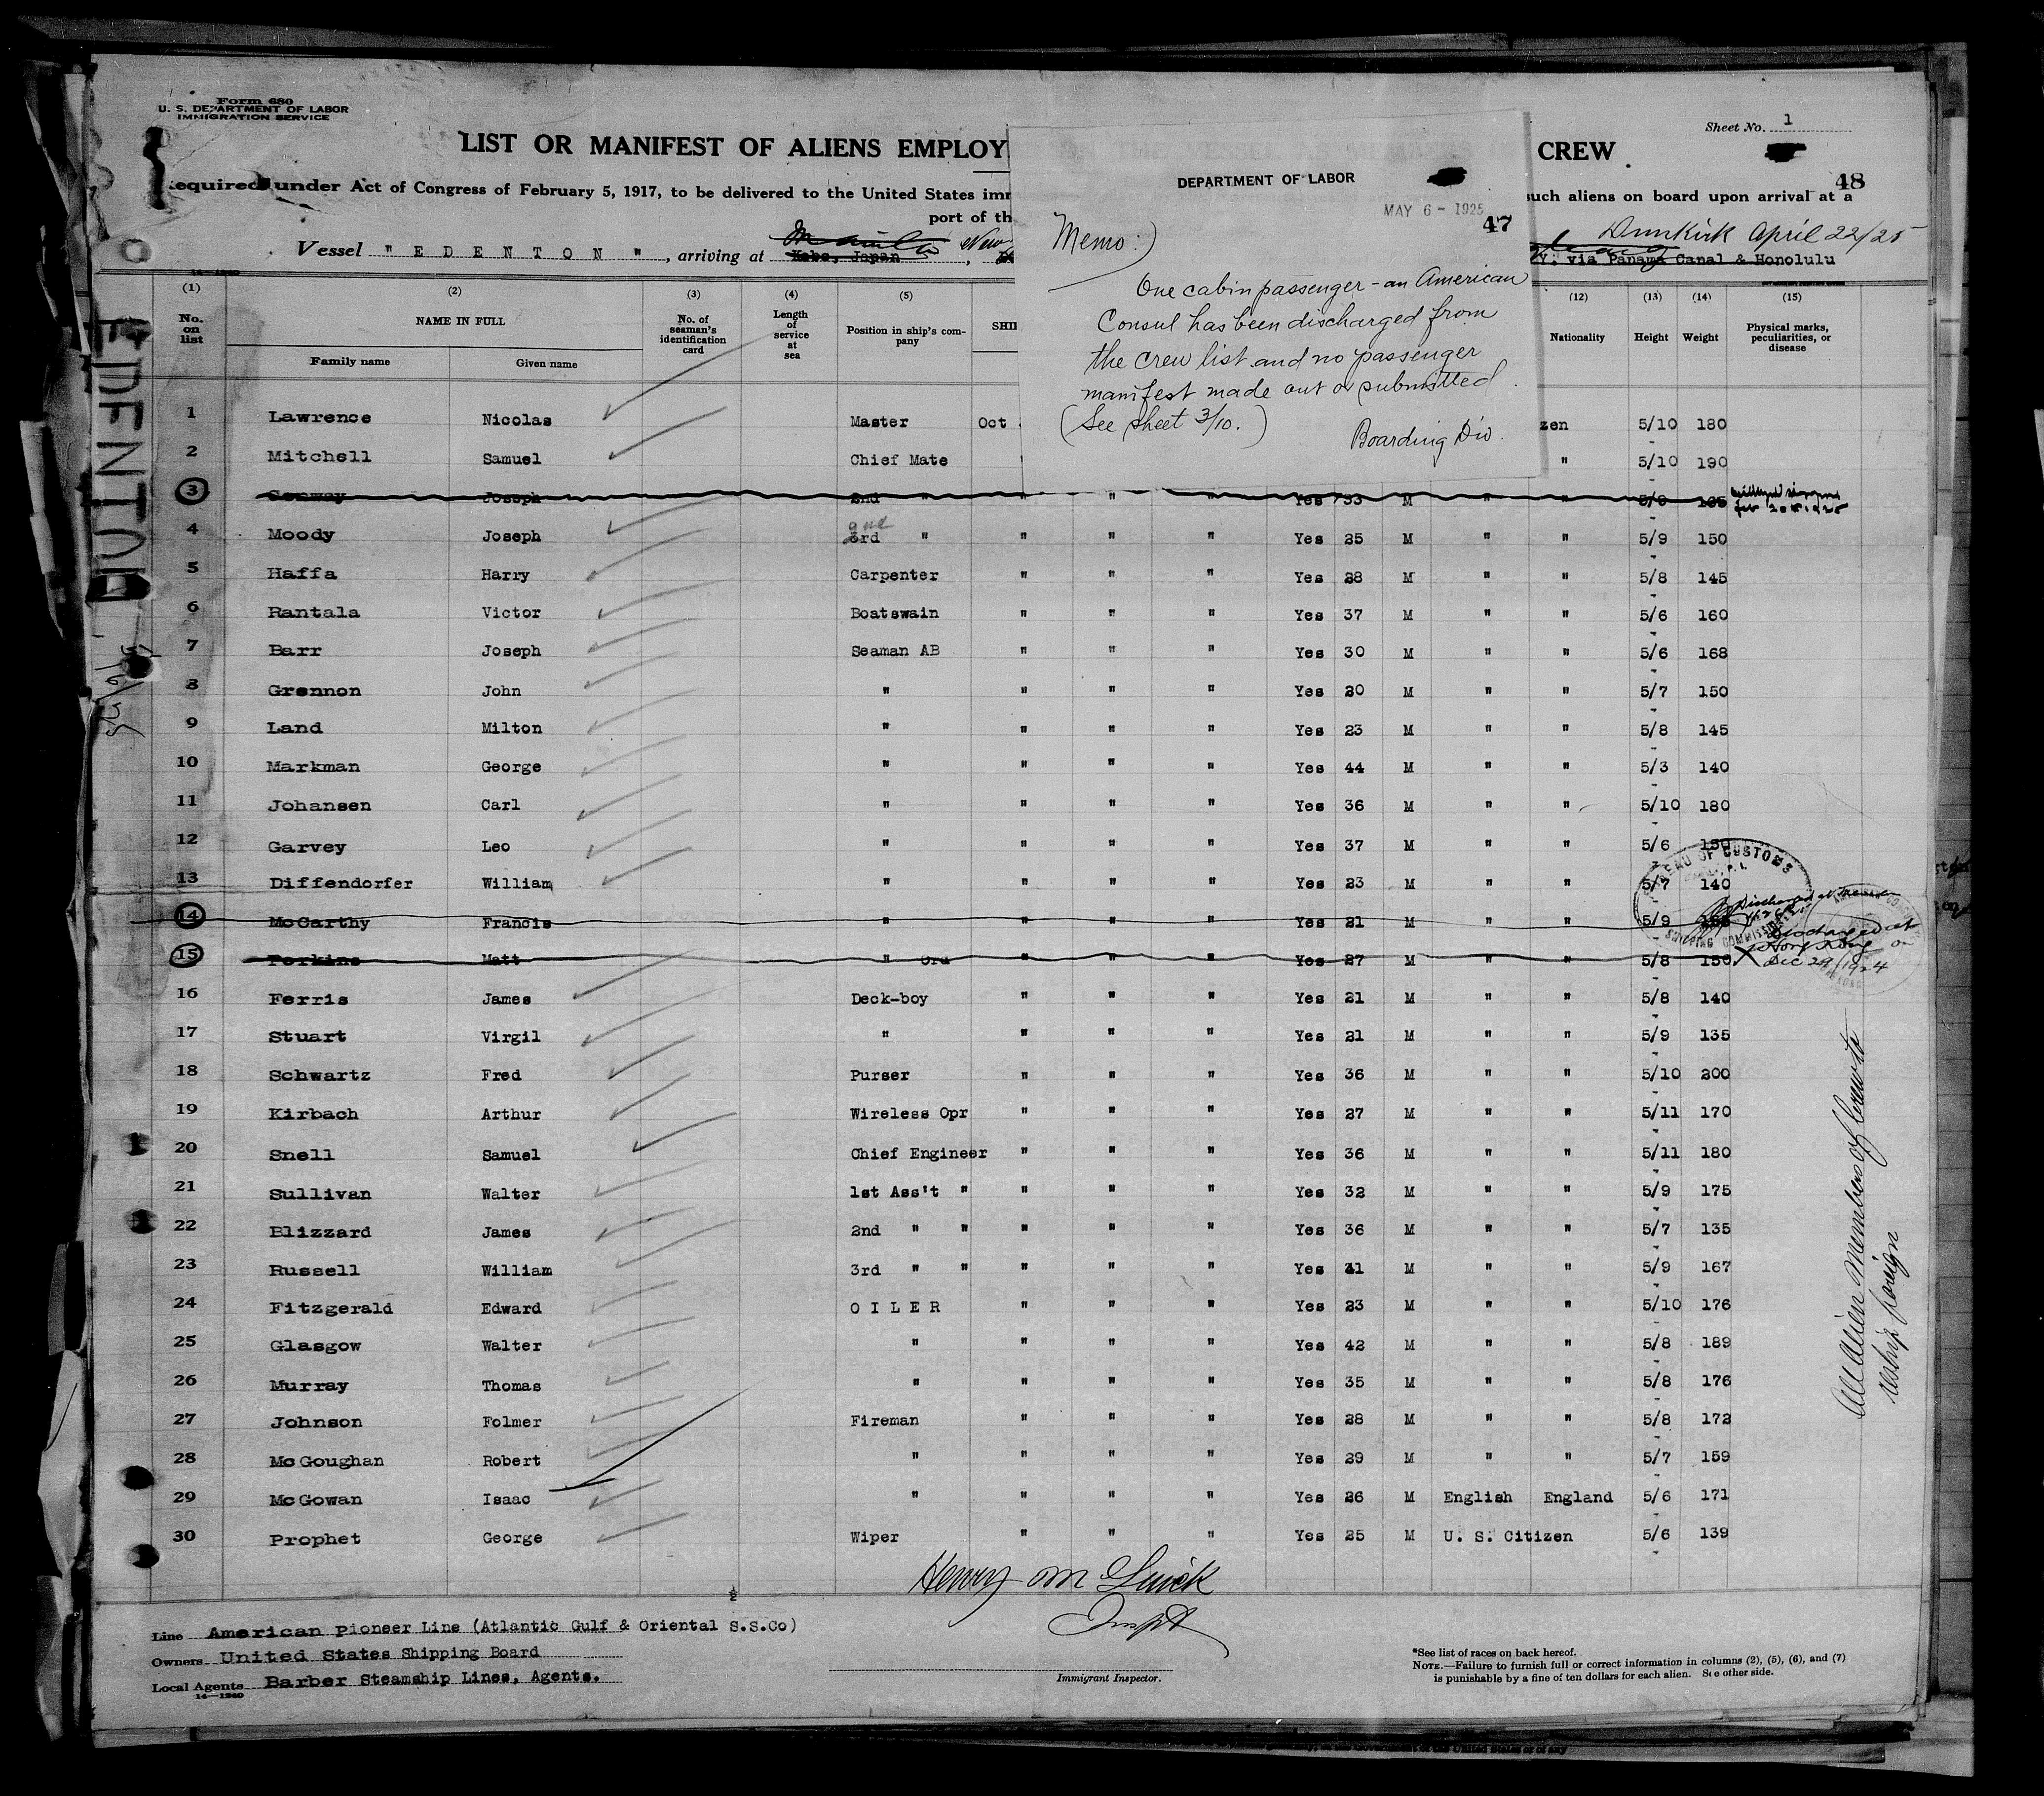 Form 680
U. S. DEPARTMENT OF LABOR
IMMIGRATION SERVICE
Sheet No. 1
LIST OR MANIFEST OF ALIENS EMPLOY CREW
48
Required under Act of Congress of February 5, 1917, to be delivered to the United States imm such aliens on board upon arrival at a
port of th
Vessel " E D E N T O N ", arriving at Kobe, Japan, New Dunkirk April 22/25
Y. via Panama Canal & Honolulu
DEPARTMENT OF LABOR
MAY 6 - 1925
47
Memo:)
One cabin passenger - an American
Consul has been discharged from
the crew list and no passenger
manifest made out or submitted.
(See sheet 3/10.)
Boarding Div.
EDENTON
5/6/25
(1) (2) (3) (4) (5) (12) (13) (14) (15)
No. on list NAME IN FULL No. of seaman's identification card Length of service at sea Position in ship's company SHI Nationality Height Weight Physical marks, peculiarities, or disease
Family name Given name
1 Lawrence Nicolas Master Oct zen 5/10 180
2 Mitchell Samuel Chief Mate " 5/10 190
3 Conway Joseph 2nd " " " " Yes 33 M " " 165
4 Moody Joseph 3rd 2nd " " " " Yes 25 M " " 5/9 150
5 Haffa Harry Carpenter " " " Yes 28 M " " 5/8 145
6 Rantala Victor Boatswain " " " Yes 37 M " " 5/6 160
7 Barr Joseph Seaman AB " " " Yes 30 M " " 5/6 168
8 Grennon John " " " " Yes 20 M " " 5/7 150
9 Land Milton " " " " Yes 23 M " " 5/8 145
10 Markman George " " " " Yes 44 M " " 5/3 140
11 Johansen Carl " " " " Yes 36 M " " 5/10 180
12 Garvey Leo " " " " Yes 37 M " " 5/6
13 Diffendorfer William " " " " Yes 23 M " " 5/7 140
14 McCarthy Francis " " " " Yes 21 M " " 5/9
15 Perkins Matt " Ord " " " Yes 27 M " " 5/8 150 Discharged at Hong Kong on Dec 29/1924
16 Ferris James Deck-boy " " " Yes 21 M " " 5/8 140
17 Stuart Virgil " " " " Yes 21 M " " 5/9 135
18 Schwartz Fred Purser " " " Yes 36 M " " 5/10 200
19 Kirbach Arthur Wireless Opr " " " Yes 27 M " " 5/11 170
20 Snell Samuel Chief Engineer " " " Yes 36 M " " 5/11 180
21 Sullivan Walter 1st Ass't " " " " Yes 32 M " " 5/9 175
22 Blizzard James 2nd " " " " " Yes 36 M " " 5/7 135
23 Russell William 3rd " " " " " Yes 31 M " " 5/9 167
24 Fitzgerald Edward O I L E R " " " Yes 23 M " " 5/10 176
25 Glasgow Walter " " " " Yes 42 M " " 5/8 189
26 Murray Thomas " " " " Yes 35 M " " 5/8 176
27 Johnson Folmer Fireman " " " Yes 28 M " " 5/8 172
28 McGoughan Robert " " " " Yes 29 M " " 5/7 159
29 McGowan Isaac " " " " Yes 26 M English England 5/6 171
30 Prophet George Wiper " " " Yes 25 M U. S. Citizen 5/6 139
BUREAU OF CUSTOMS
SHIPPING COMMISSIONER
All Alien Members of Crew to
reship foreign
Line American Pioneer Line (Atlantic Gulf & Oriental S.S.Co)
Owners United States Shipping Board
Local Agents Barber Steamship Lines, Agents.
14—1240
Immigrant Inspector.
*See list of races on back hereof.
NOTE.—Failure to furnish full or correct information in columns (2), (5), (6), and (7)
is punishable by a fine of ten dollars for each alien. See other side.